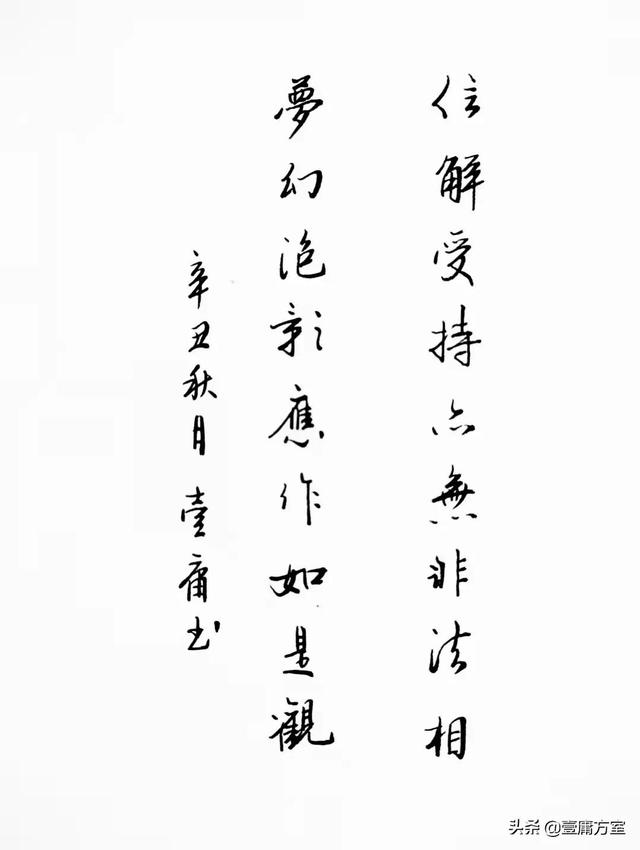 信解受持亦無非法相
夢幻泡影應作如是觀
辛丑秋月壹庸书
头条 @壹庸方室